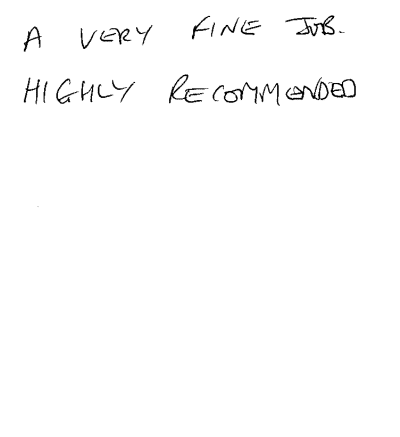 A VERY FINE JOB.
HIGHLY RECOMMENDED